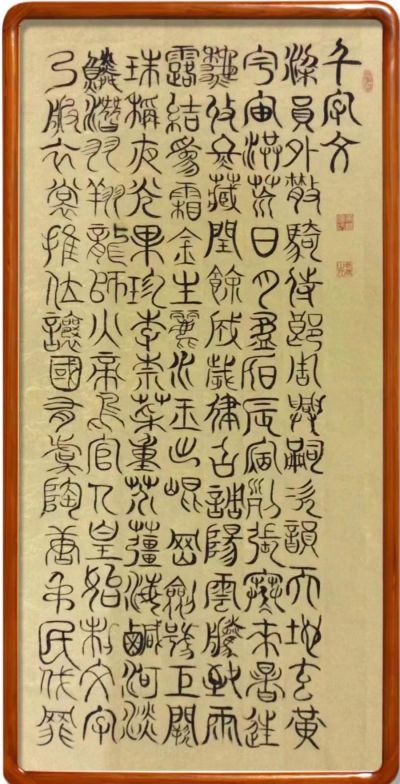 千字文
梁員外散騎侍郎周興嗣次韻天地玄黃
宇宙洪荒日月盈昃辰宿列張寒來暑往
秋收冬藏閏餘成歲律呂調陽雲騰致雨
露結為霜金生麗水玉出崐岡劍號巨闕
珠稱夜光果珍李柰菜重芥薑海鹹河淡
鱗潛羽翔龍師火帝鳥官人皇始制文字
乃服衣裳推位讓國有虞陶唐弔民伐罪